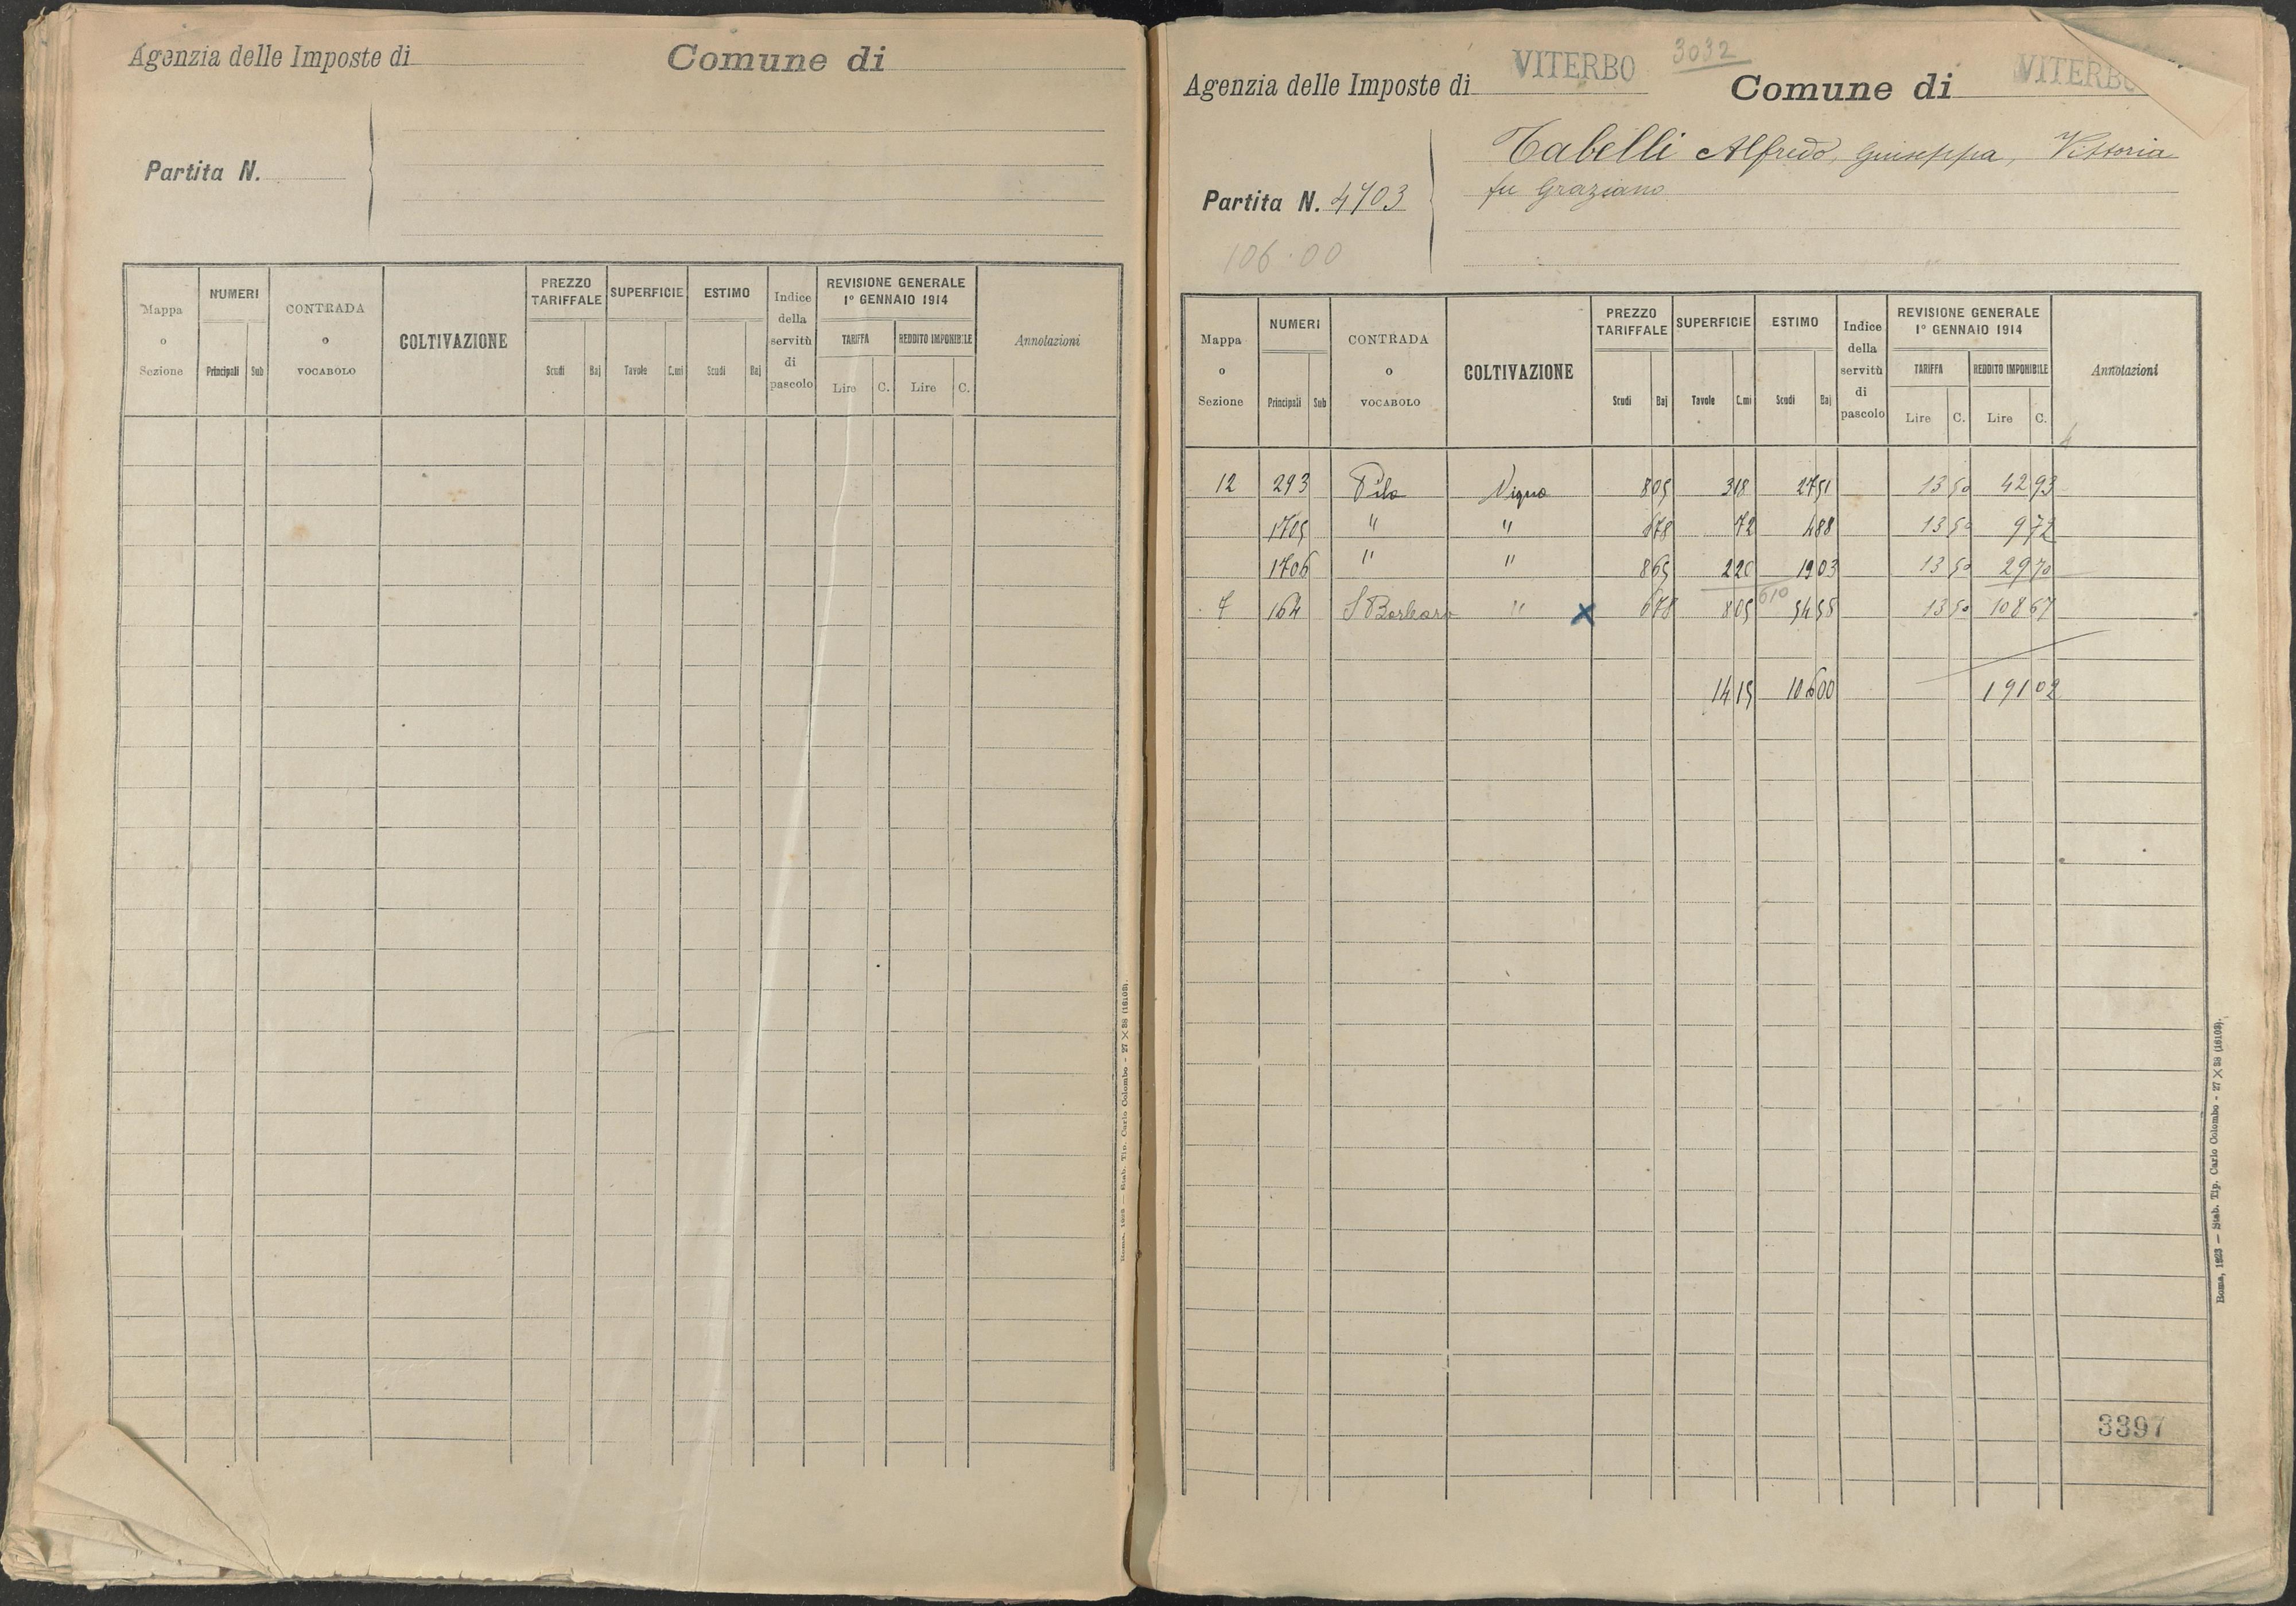 Agenzia delle Imposte di
Comune di
Partita N.
Mappa o Sezione
NUMERI
Principali Sub
CONTRADA o VOCABOLO
COLTIVAZIONE
PREZZO TARIFFALE
Scudi Baj
SUPERFICIE
Tavole C.mi
ESTIMO
Scudi Baj
Indice della servitù di pascolo
REVISIONE GENERALE
1° GENNAIO 1914
TARIFFA REDDITO IMPONIBILE
Lire C. Lire C.
Annotazioni
Roma, 1923 — Stab. Tip. Carlo Colombo - 27 × 38 (16103).
3032
Agenzia delle Imposte di VITERBO
Comune di VITERBO
Tabelli Alfredo, Giuseppa, Vittoria
fu Graziano
Partita N. 4703
106.00
Mappa o Sezione
NUMERI
Principali Sub
CONTRADA o VOCABOLO
COLTIVAZIONE
PREZZO TARIFFALE
Scudi Baj
SUPERFICIE
Tavole C.mi
ESTIMO
Scudi Baj
Indice della servitù di pascolo
REVISIONE GENERALE
1° GENNAIO 1914
TARIFFA REDDITO IMPONIBILE
Lire C. Lire C.
Annotazioni
12 293 Pila Vigna 8 65 3 18 27 51 13 50 42 93
1705 " " 6 78 72 4 88 13 50 9 72
1706 " " 8 65 2 20 19 03 13 50 29 70
610
7 164 S Barbara " x 6 78 8 05 54 58 13 50 108 67
14 15 106 00 191 02
3397
Roma, 1923 — Stab. Tip. Carlo Colombo - 27 × 38 (16103).